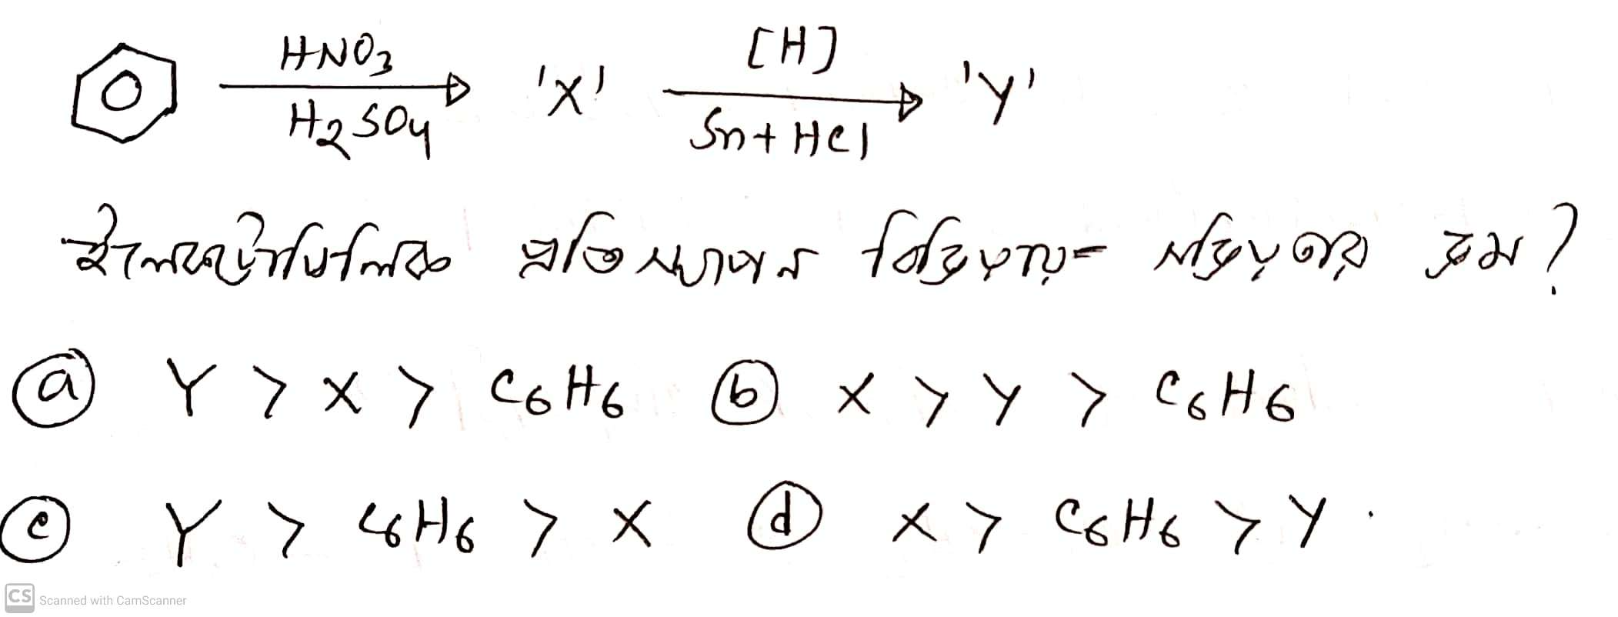 HNO3 [H]
H2SO4 'X' Sn+HCl 'Y'
ইলেকট্রোফিলিক প্রতিস্থাপন বিক্রিয়ায় সক্রিয়তার ক্রম?
ⓐ Y > X > C6H6 ⓑ X > Y > C6H6
ⓒ Y > C6H6 > X ⓓ X > C6H6 > Y.
CS Scanned with CamScanner